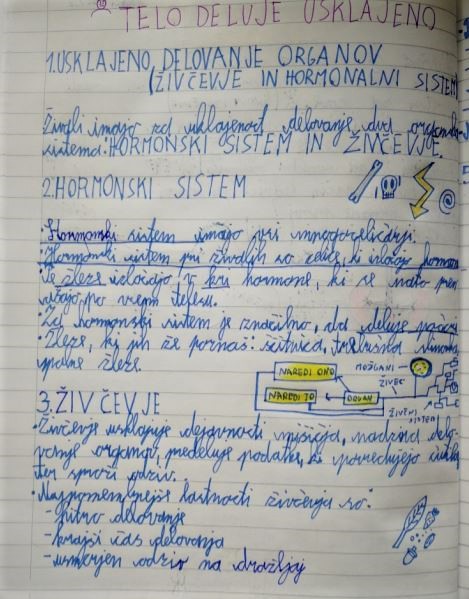 TELO DELUJE USKLAJENO
1. USKLAJENO DELOVANJE ORGANOV
(ŽIVČEVJE IN HORMONALNI SISTEM
Živali imajo za usklajenost delovanje dva organska
sistema: HORMONSKI SISTEM IN ŽIVČEVJE.
2. HORMONSKI SISTEM
· Hormonski sistem imajo vsi mnogoceličarji.
· Hormonski sistem pri živalih so celice, ki izločajo hormone
· Te žleze izločajo v kri hormone, ki se nato
po vsem telesu.
· Za hormonski sistem je značilno, da deluje počasi
· Žleze, ki jih že poznaš: ščitnica, trebušna slinavka,
spolne žleze.
NAREDI ONO
MOŽGANI
ŽIVEC
NAREDI TO
ORGAN
ŽIVČNI
SISTEM
3. ŽIVČEVJE
· Živčevje usklajuje dejavnosti mišičja, nadzira delo-
vanje organov, predeluje podatke, ki posredujejo čutila
ter sproži odziv.
· Najpomembnejše lastnosti živčevja so:
- hitro delovanje
- krajši čas delovanja
- usmerjen odziv na dražljaj